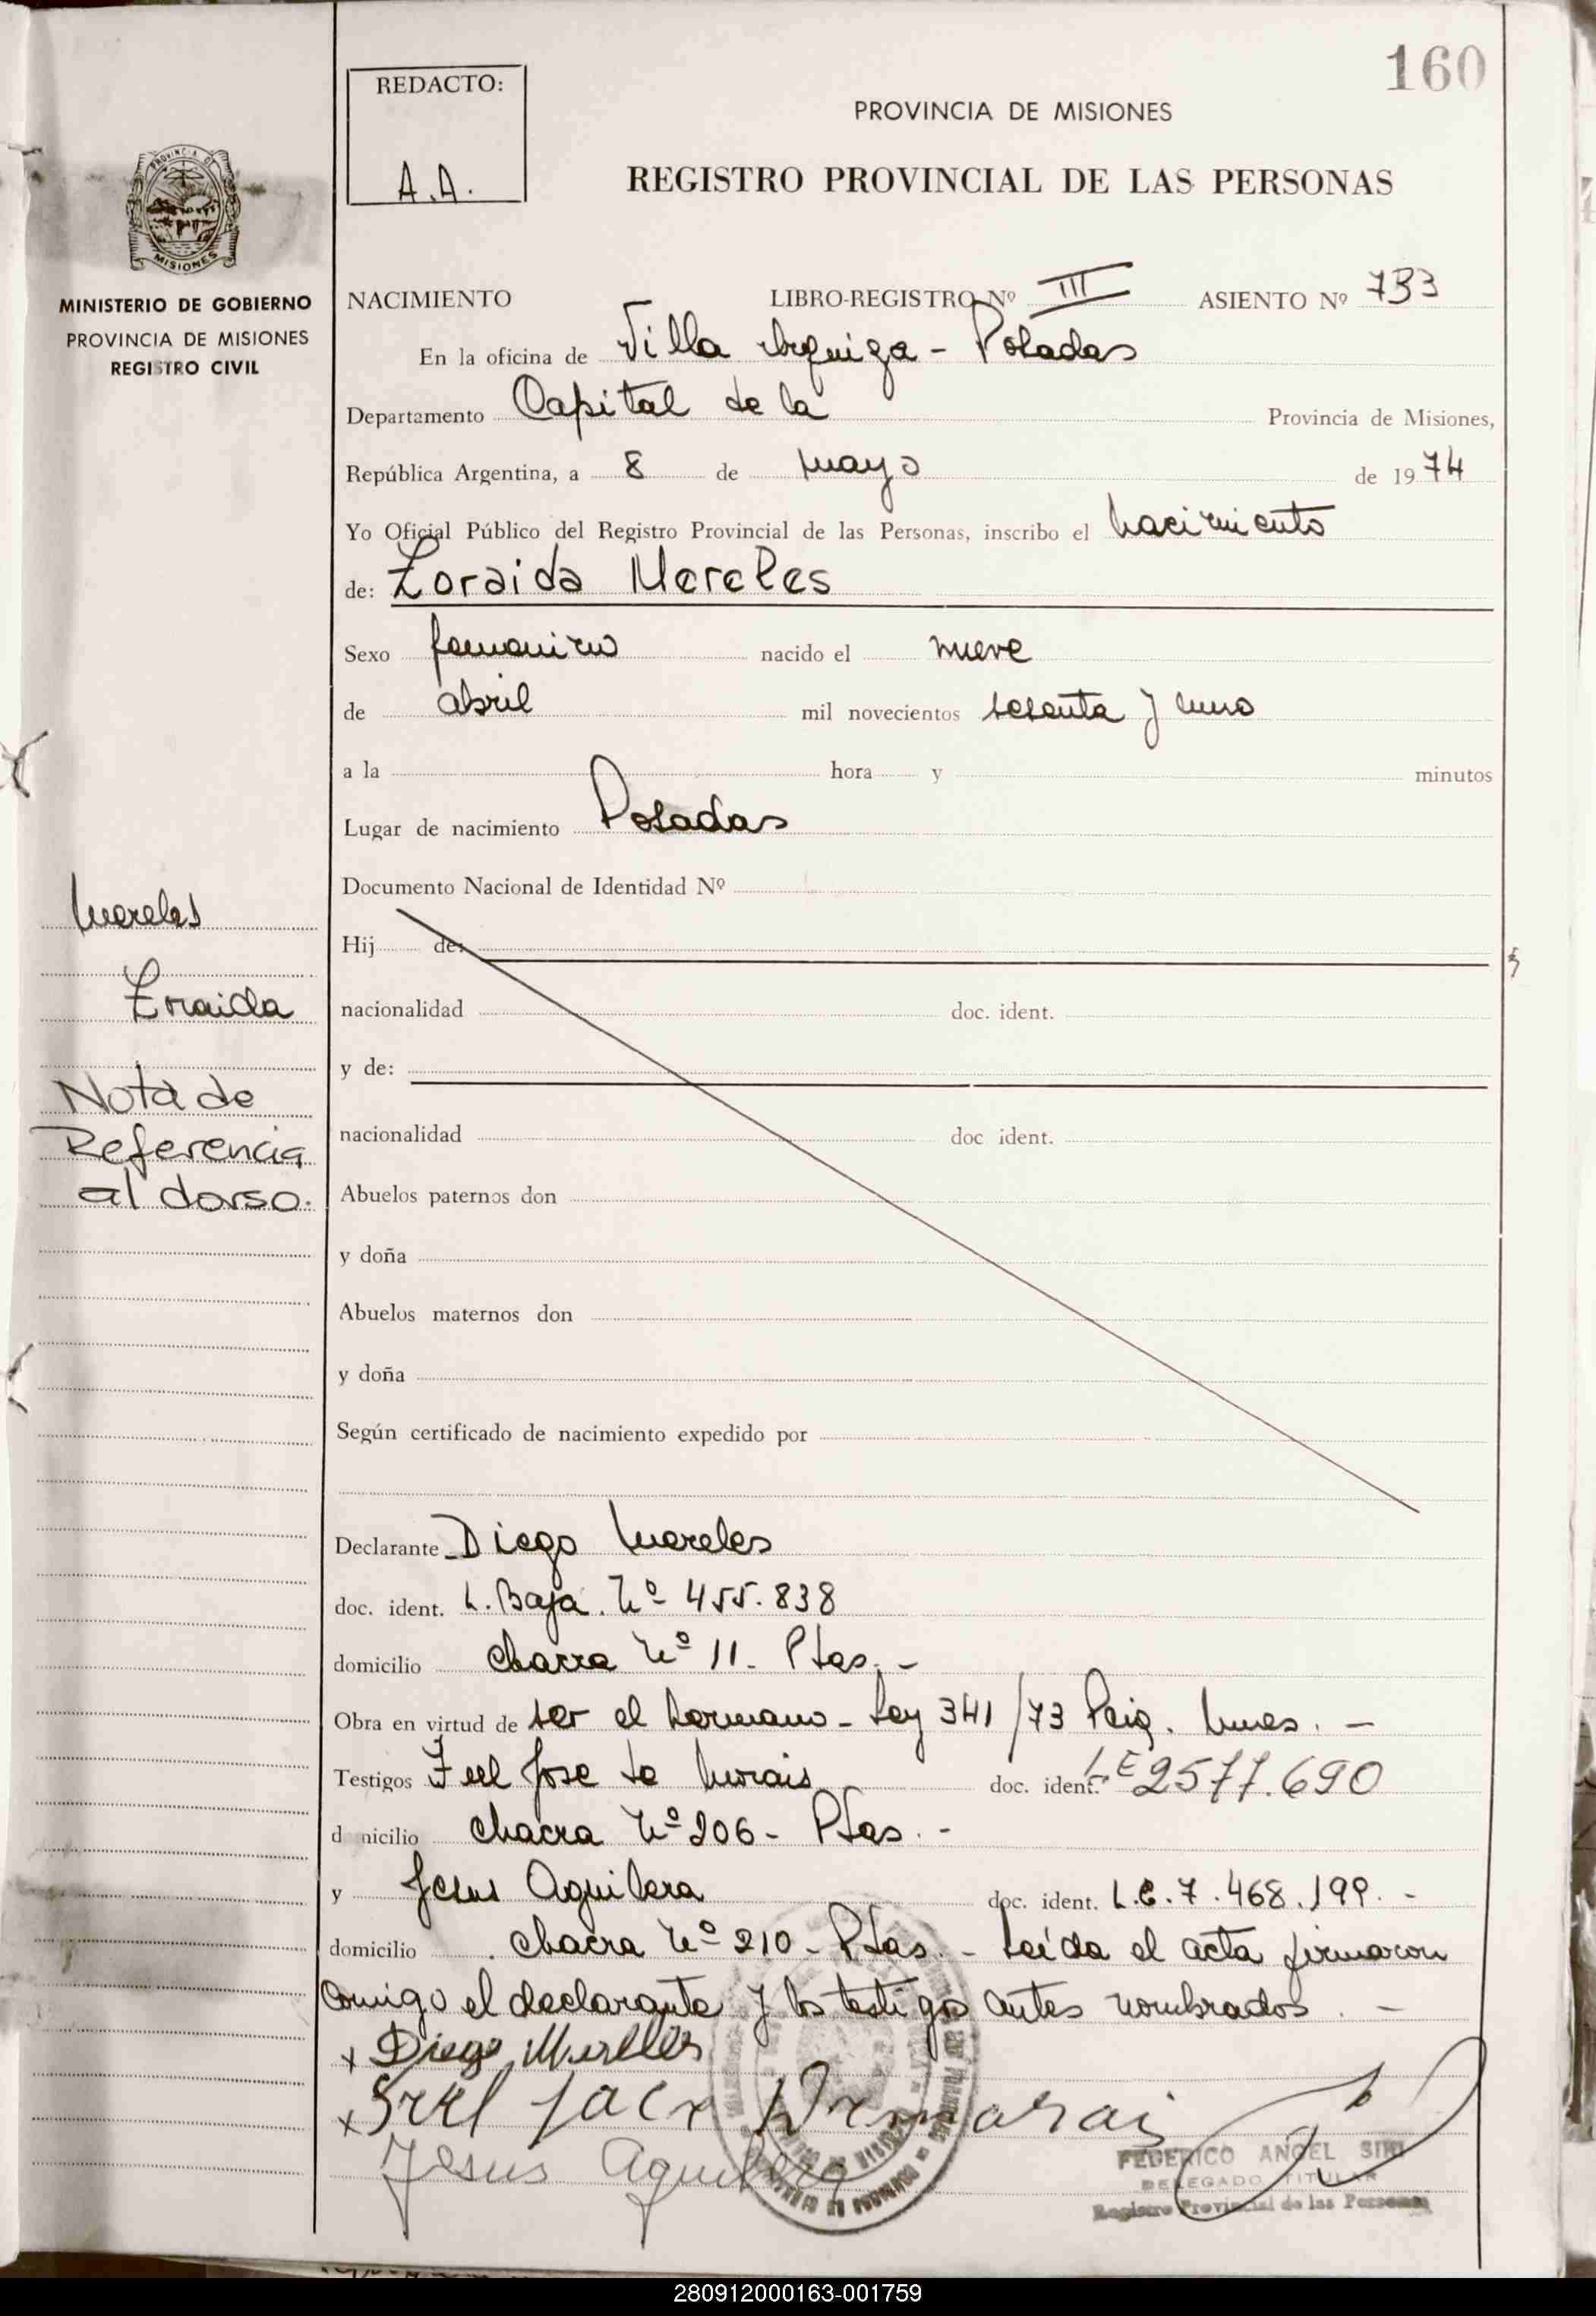 160
REDACTO:
A.A.
PROVINCIA DE MISIONES
REGISTRO PROVINCIAL DE LAS PERSONAS
PROVINCIA DE
MISIONES
MINISTERIO DE GOBIERNO
PROVINCIA DE MISIONES
REGISTRO CIVIL
NACIMIENTO LIBRO-REGISTRO Nº III ASIENTO Nº 733
En la oficina de Villa Urquiza - Posadas
Departamento Capital de la Provincia de Misiones,
República Argentina, a 8 de mayo de 1974
Yo Oficial Público del Registro Provincial de las Personas, inscribo el nacimiento
de: Zoraida Mereles
Sexo femenino nacido el nueve
de abril mil novecientos sesenta y uno
a la hora y minutos
Lugar de nacimiento Posadas
Documento Nacional de Identidad Nº
Mereles
Zoraida
Nota de
Referencia
al dorso.
Hij de:
nacionalidad doc. ident.
y de:
nacionalidad doc ident.
Abuelos paternos don
y doña
Abuelos maternos don
y doña
Según certificado de nacimiento expedido por
Declarante Diego Mereles
doc. ident. L. Baja. Nº 455.838
domicilio chacra Nº 11. Pdas. -
Obra en virtud de ser el hermano - Ley 341/73
Testigos José de Morais doc. ident. LE 2577.690
domicilio chacra Nº 206 - Pdas. -
y Jesus Aguilera doc. ident. L.E. 7.468.199. -
domicilio chacra Nº 210 - Pdas. - Leída el acta firmaron
comigo el declarante y los testigos antes nombrados. -
x Diego Mereles
x
Jesus Aguilera
FEDERICO ANGEL SIRI
DELEGADO TITULAR
Registro Provincial de las Personas
280912000163-001759